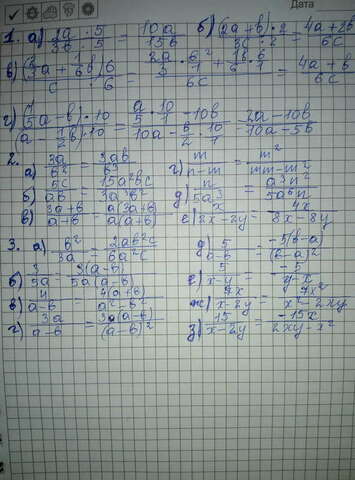 Дата
1. а) 2a · 5 / 3b · 5 = 10a / 15b б) (2a + b) · 2 / 3c · 2 = 4a + 2b / 6c
в) (2/3 a + 1/6 b) 6 / c · 6 = 2a · 6 / 3 · 1 + 1b · 6 / 6 · 1 / 6c = 4a + b / 6c
г) (1/5 a - b) · 10 / (a - 1/2 b) · 10 = a · 10 / 5 · 1 - 10b / 10a - b/2 · 10/1 = 2a - 10b / 10a - 5b
2. а) 3a / b² = 3ab / b³ г) m / n-m = m² / mn-m²
б) 5c / ab = 15a²bc / 3a³b² д) n / 5a³ = a³n² / 5a⁶n
в) 3a+b / a-b = a(3a+b) / a(a+b) е) x / 2x-2y = 4x / 8x-8y
3. а) b² / 3a = 2ab²c / 6a²c д) 5 / a-b = -5(b-a) / (b-a)²
б) 3 / 5a = 3(a-b) / 5a(a-b) е) 5 / x-y = -5 / y-x
в) 4 / a-b = 4(a+b) / a²-b² ж) 7x / x-2y = 7x² / x²-2xy
г) 3a / a-b = 3a(a-b) / (a-b)² з) 15 / x-2y = -15x / 2xy-x²